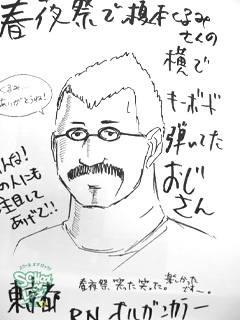 春夜祭で榎本くるみ
さんの
横で
キーボード
弾いてた
おじ
さん
くるみ…
ありがとうね!
んな!
の人にも
注目して
あげて!!
東京都
春夜祭 笑った笑った。楽しかった
ですー。
P.N オルガンカラー